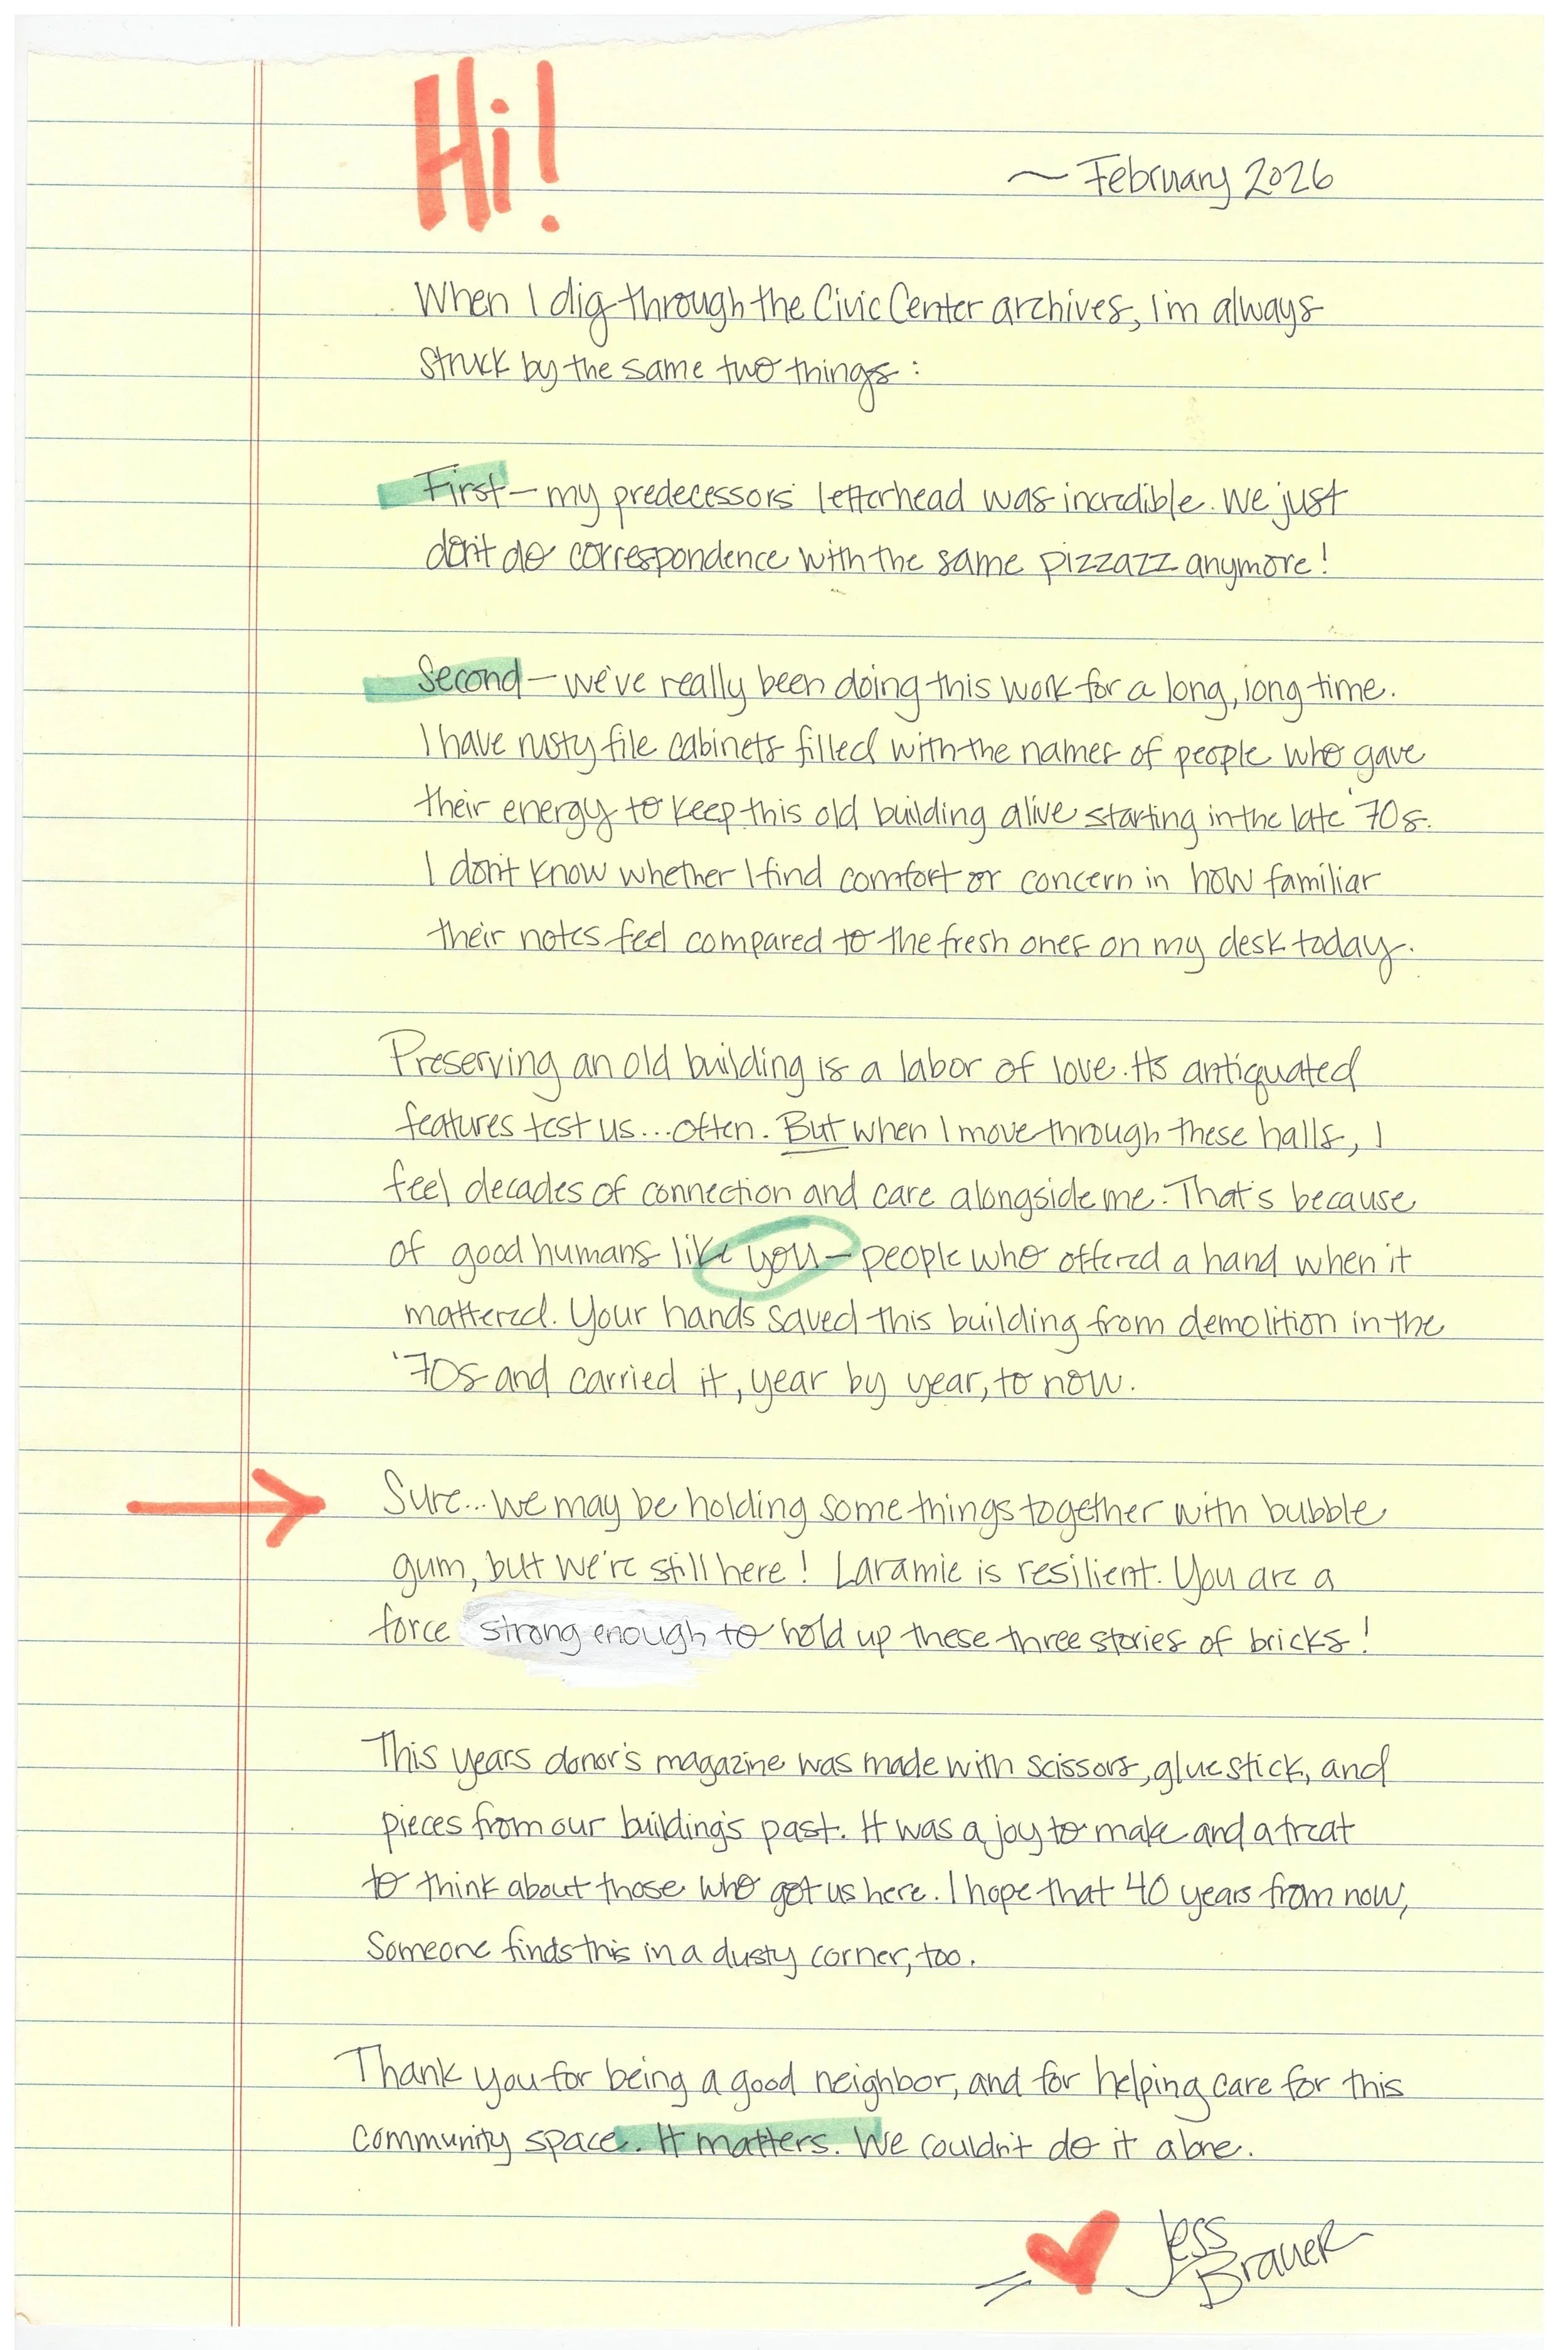 Hi!
~ February 2026
When I dig through the Civic Center archives, I'm always
struck by the same two things:
First - my predecessors letterhead was incredible. We just
don't do correspondence with the same pizzazz anymore!
Second - we've really been doing this work for a long, long time.
I have rusty file cabinets filled with the names of people who gave
their energy to keep this old building alive starting in the late '70s.
I don't know whether I find comfort or concern in how familiar
their notes feel compared to the fresh ones on my desk today.
Preserving an old building is a labor of love. It's antiquated
features test us... often. But when I move through these halls, I
feel decades of connection and care alongside me. That's because
of good humans like you - people who offered a hand when it
mattered. Your hands saved this building from demolition in the
'70s and carried it, year by year, to now.
Sure... we may be holding some things together with bubble
gum, but we're still here! Laramie is resilient. You are a
force strong enough to hold up these three stories of bricks!
This years donor's magazine was made with scissors, glue stick, and
pieces from our building's past. It was a joy to make and a treat
to think about those who got us here. I hope that 40 years from now,
someone finds this in a dusty corner, too.
Thank you for being a good neighbor, and for helping care for this
community space. It matters. We couldn't do it alone.
Jess
Brauer